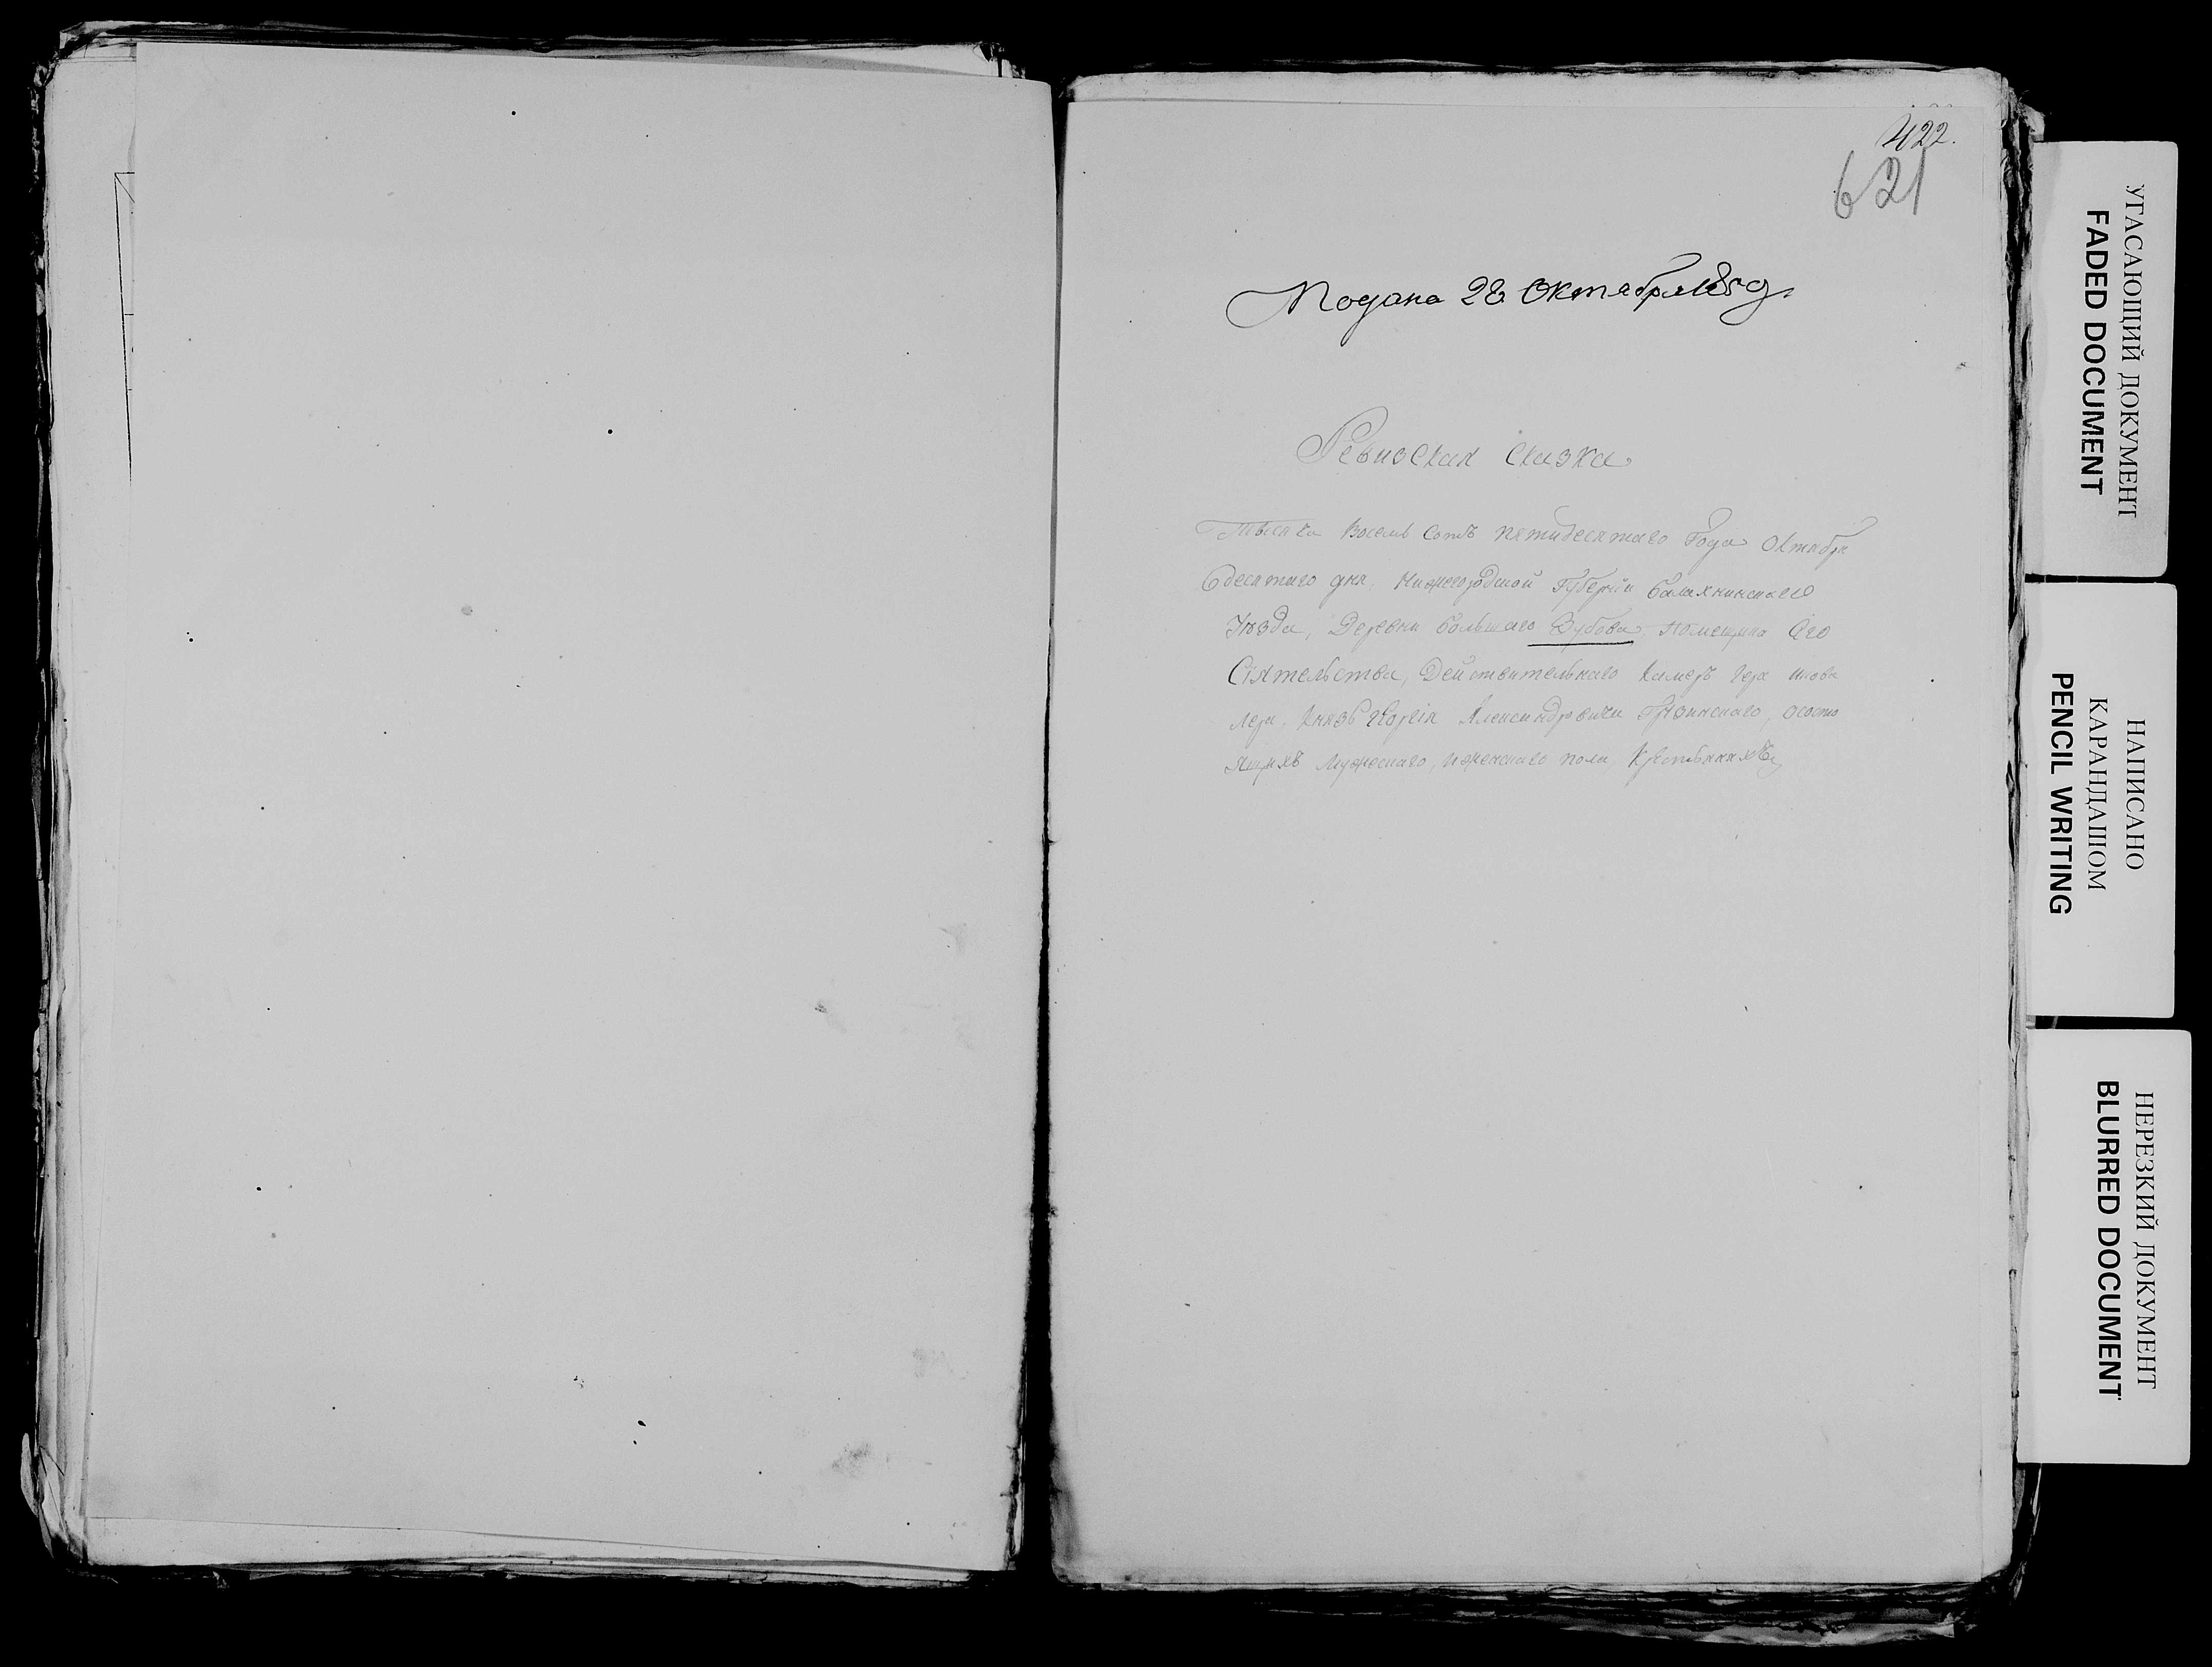 422.
621
Подана 28 Октября 1850 г.
Ревиская Сказка
Тысяча Восемь Сотъ пятидесятаго Года Октября
десятаго дня, Нижегородской Губерніи Балахнинскаго
Уѣзда, Деревни большаго Зубова, Помещика Его
Сіятельства, Действительнаго Камеръ Гера
лера Князь Георгія Александровича Грузинскаго, ососто
ящихъ Мужескаго, иженскаго пола, Крестьянахъ
УГАСАЮЩИЙ ДОКУМЕНТ
FADED DOCUMENT
НАПИСАНО
КАРАНДАШОМ
PENCIL WRITING
НЕРЕЗКИЙ ДОКУМЕНТ
BLURRED DOCUMENT